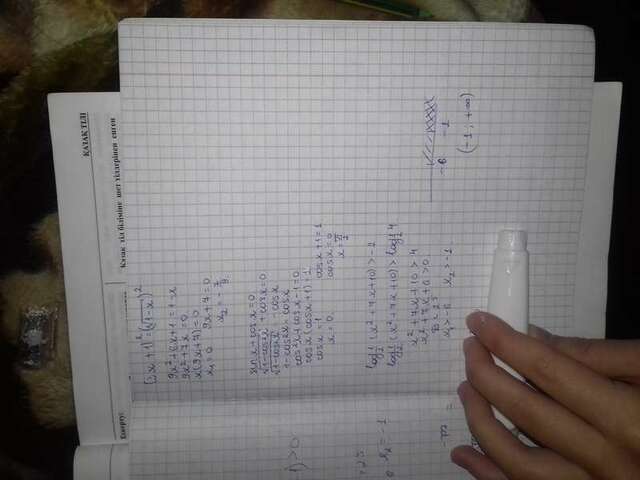 ҚАЗАҚ ТІЛІ
Ескерту:
Қазақ тіл біліміне шет тілдерінен енген
(3x + 1)² = (√1-x)²
9x² + 6x + 1 = 1 - x
9x² + 7x = 0
x(9x + 7) = 0
x₁ = 0 9x + 7 = 0
x₂ = - 7/9
sin x + cos x = 0
√1-cos²x + cos x = 0
√1-cos²x = -cos x
1 - cos²x = cos x
cos²x + cos x - 1 = 0
cos x (cos x + 1) = 1
cos x = 1 cos x + 1 = 1
x = 0 cos x = 0
x = π/2
log 1/2 (x² + 7x + 10) > -2
log 1/2 (x² + 7x + 10) > log 1/2 4
x² + 7x + 10 > 4
x² + 7x + 6 > 0
D = 25
x₁ > -6 x₂ > -1
-6 -1
(-1 ; +∞)
-1) > 0
x₂ = -1